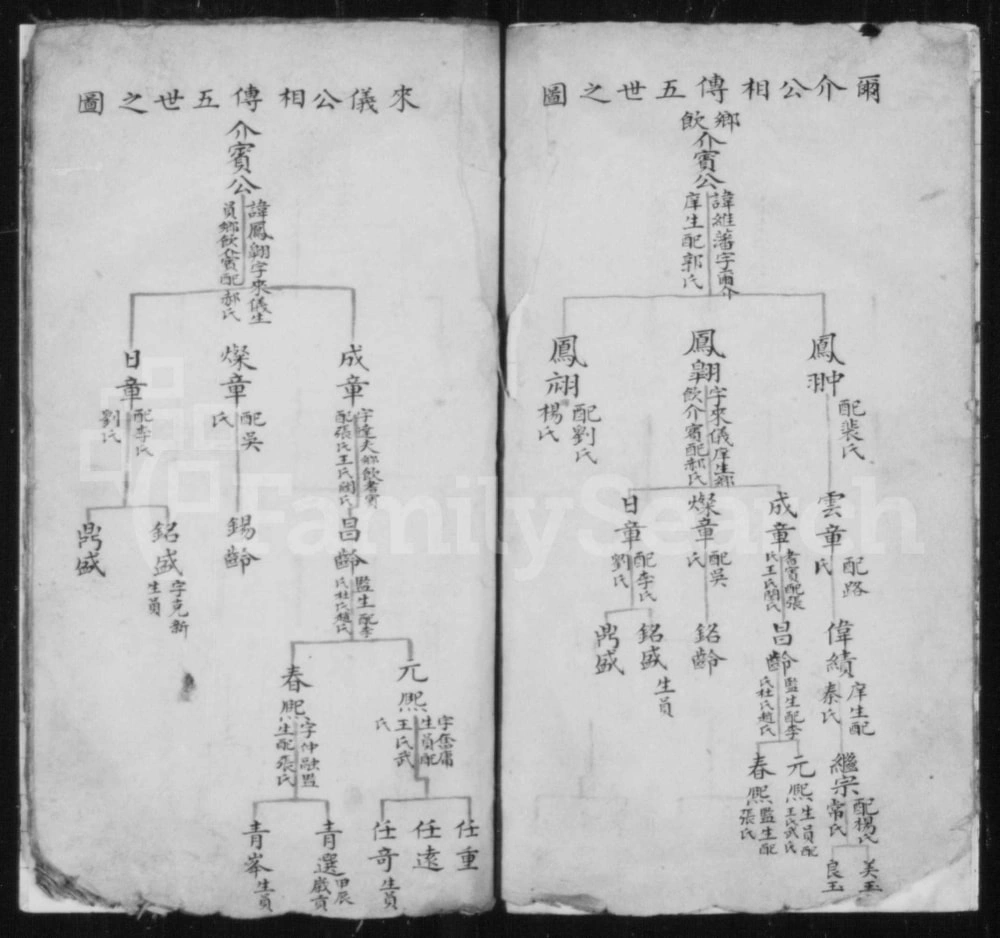 爾介公相傳五世之圖
鄉飲介賓公
諱維藩字爾介
庠生配郭氏
鳳翀
配裴氏
鳳翱
字來儀庠生鄉
飲介賓配郝氏
鳳翊
配劉氏
楊氏
雲章
配路氏
成章
耆賓配張
氏王氏閻氏
燦章
配吳氏
日章
配李氏
劉氏
偉績
庠生配
秦氏
昌齡
監生配李
氏杜氏趙氏
錫齡
銘盛
生員
鼎盛
繼宗
配楊氏
常氏
元熙
生員配
王氏武氏
春熙
監生配
張氏
美玉
良玉
來儀公相傳五世之圖
介賓公
諱鳳翱字來儀生
員鄉飲介賓配郝氏
成章
字達夫鄉飲耆賓
配張氏王氏閻氏
燦章
配吳氏
日章
配李氏
劉氏
昌齡
監生配李
氏杜氏趙氏
錫齡
銘盛
字克新
生員
鼎盛
元熙
字奮庸
生員配
王氏武氏
春熙
字仲融監
生配張氏
任重
任遠
任奇
生員
青選
甲辰
歲貢
青峯
生員
FamilySearch